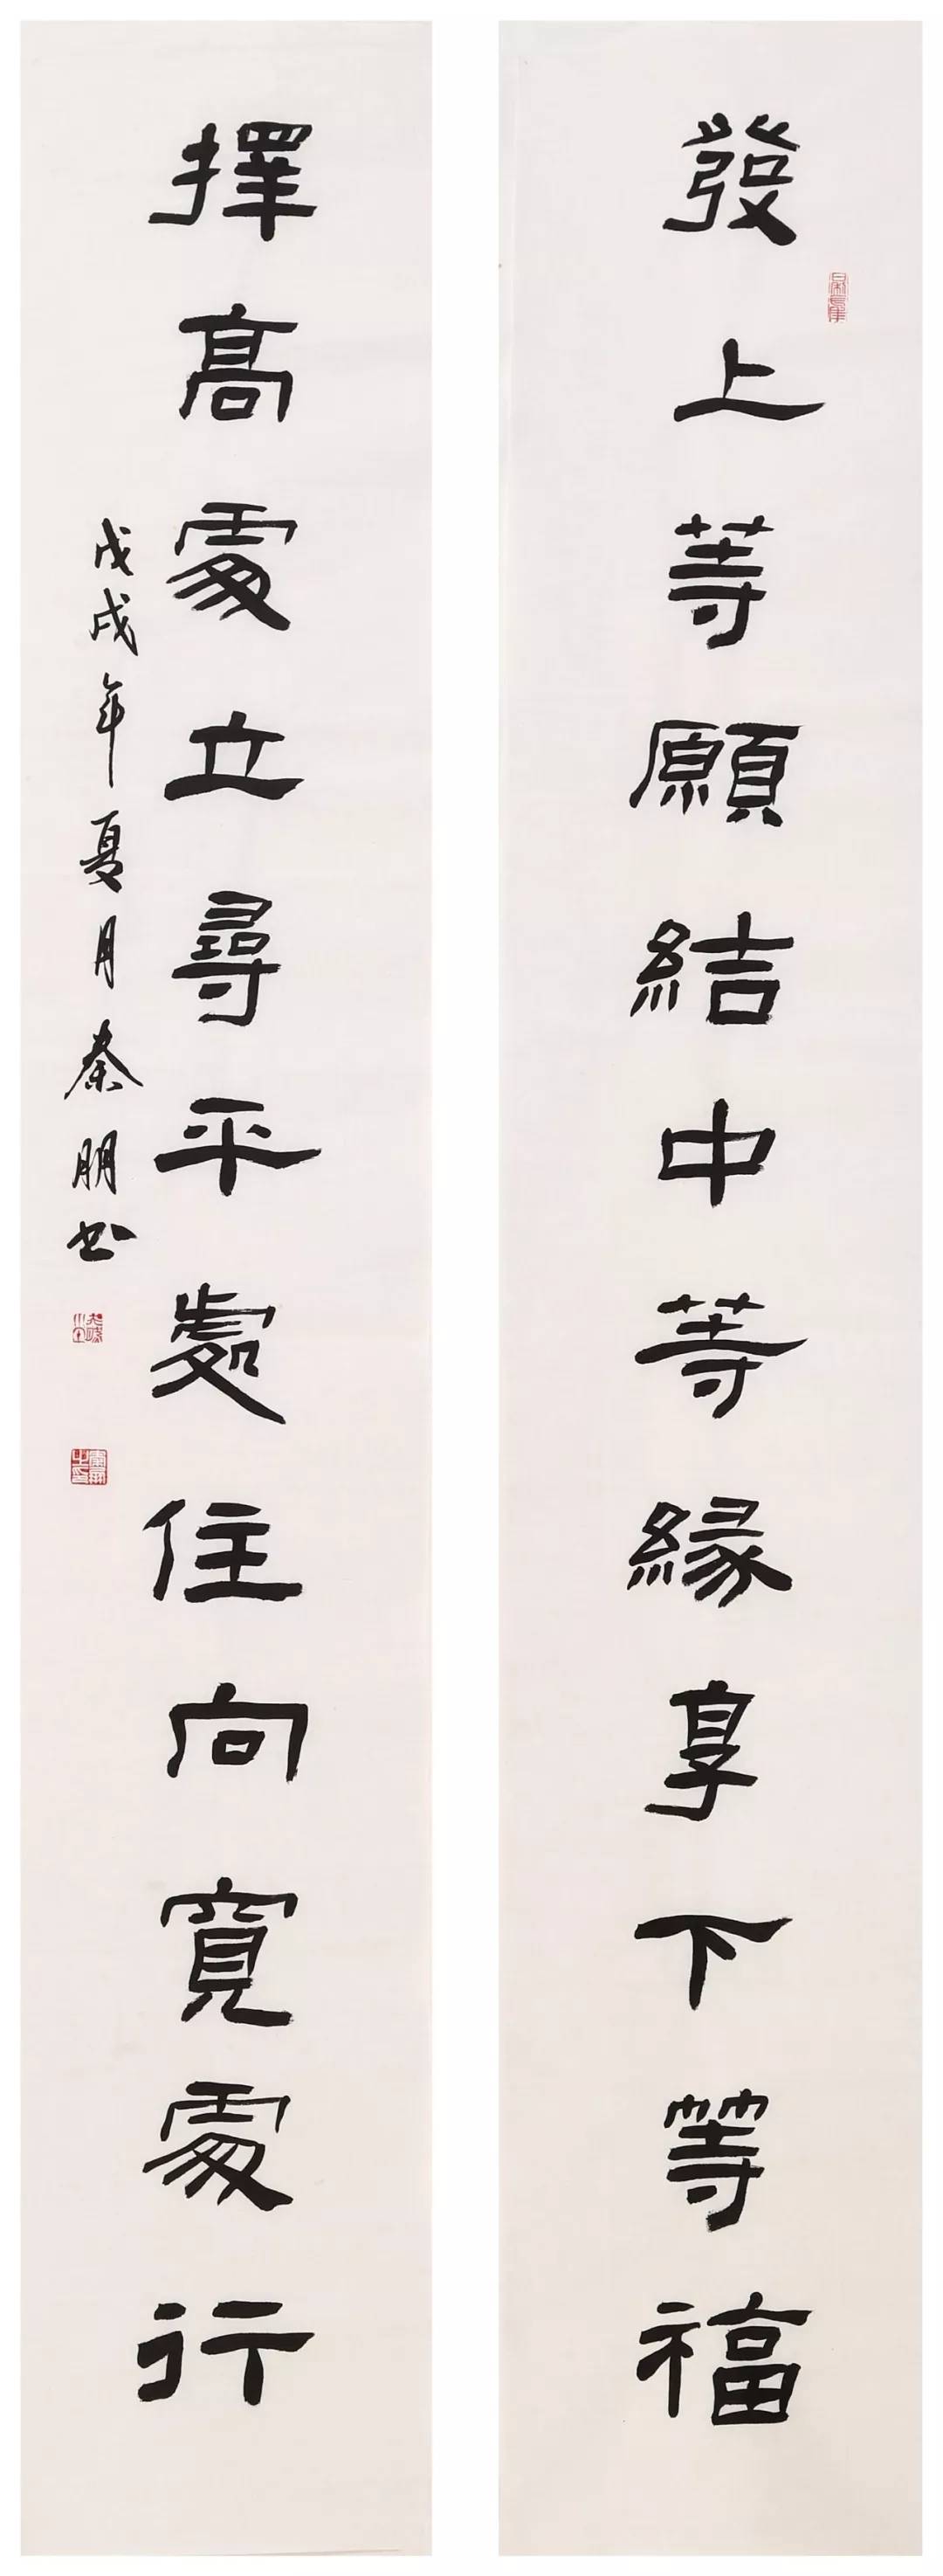 發上等願結中等緣享下等福
擇高處立尋平處住向寬處行
戊戌年夏月秦朋书